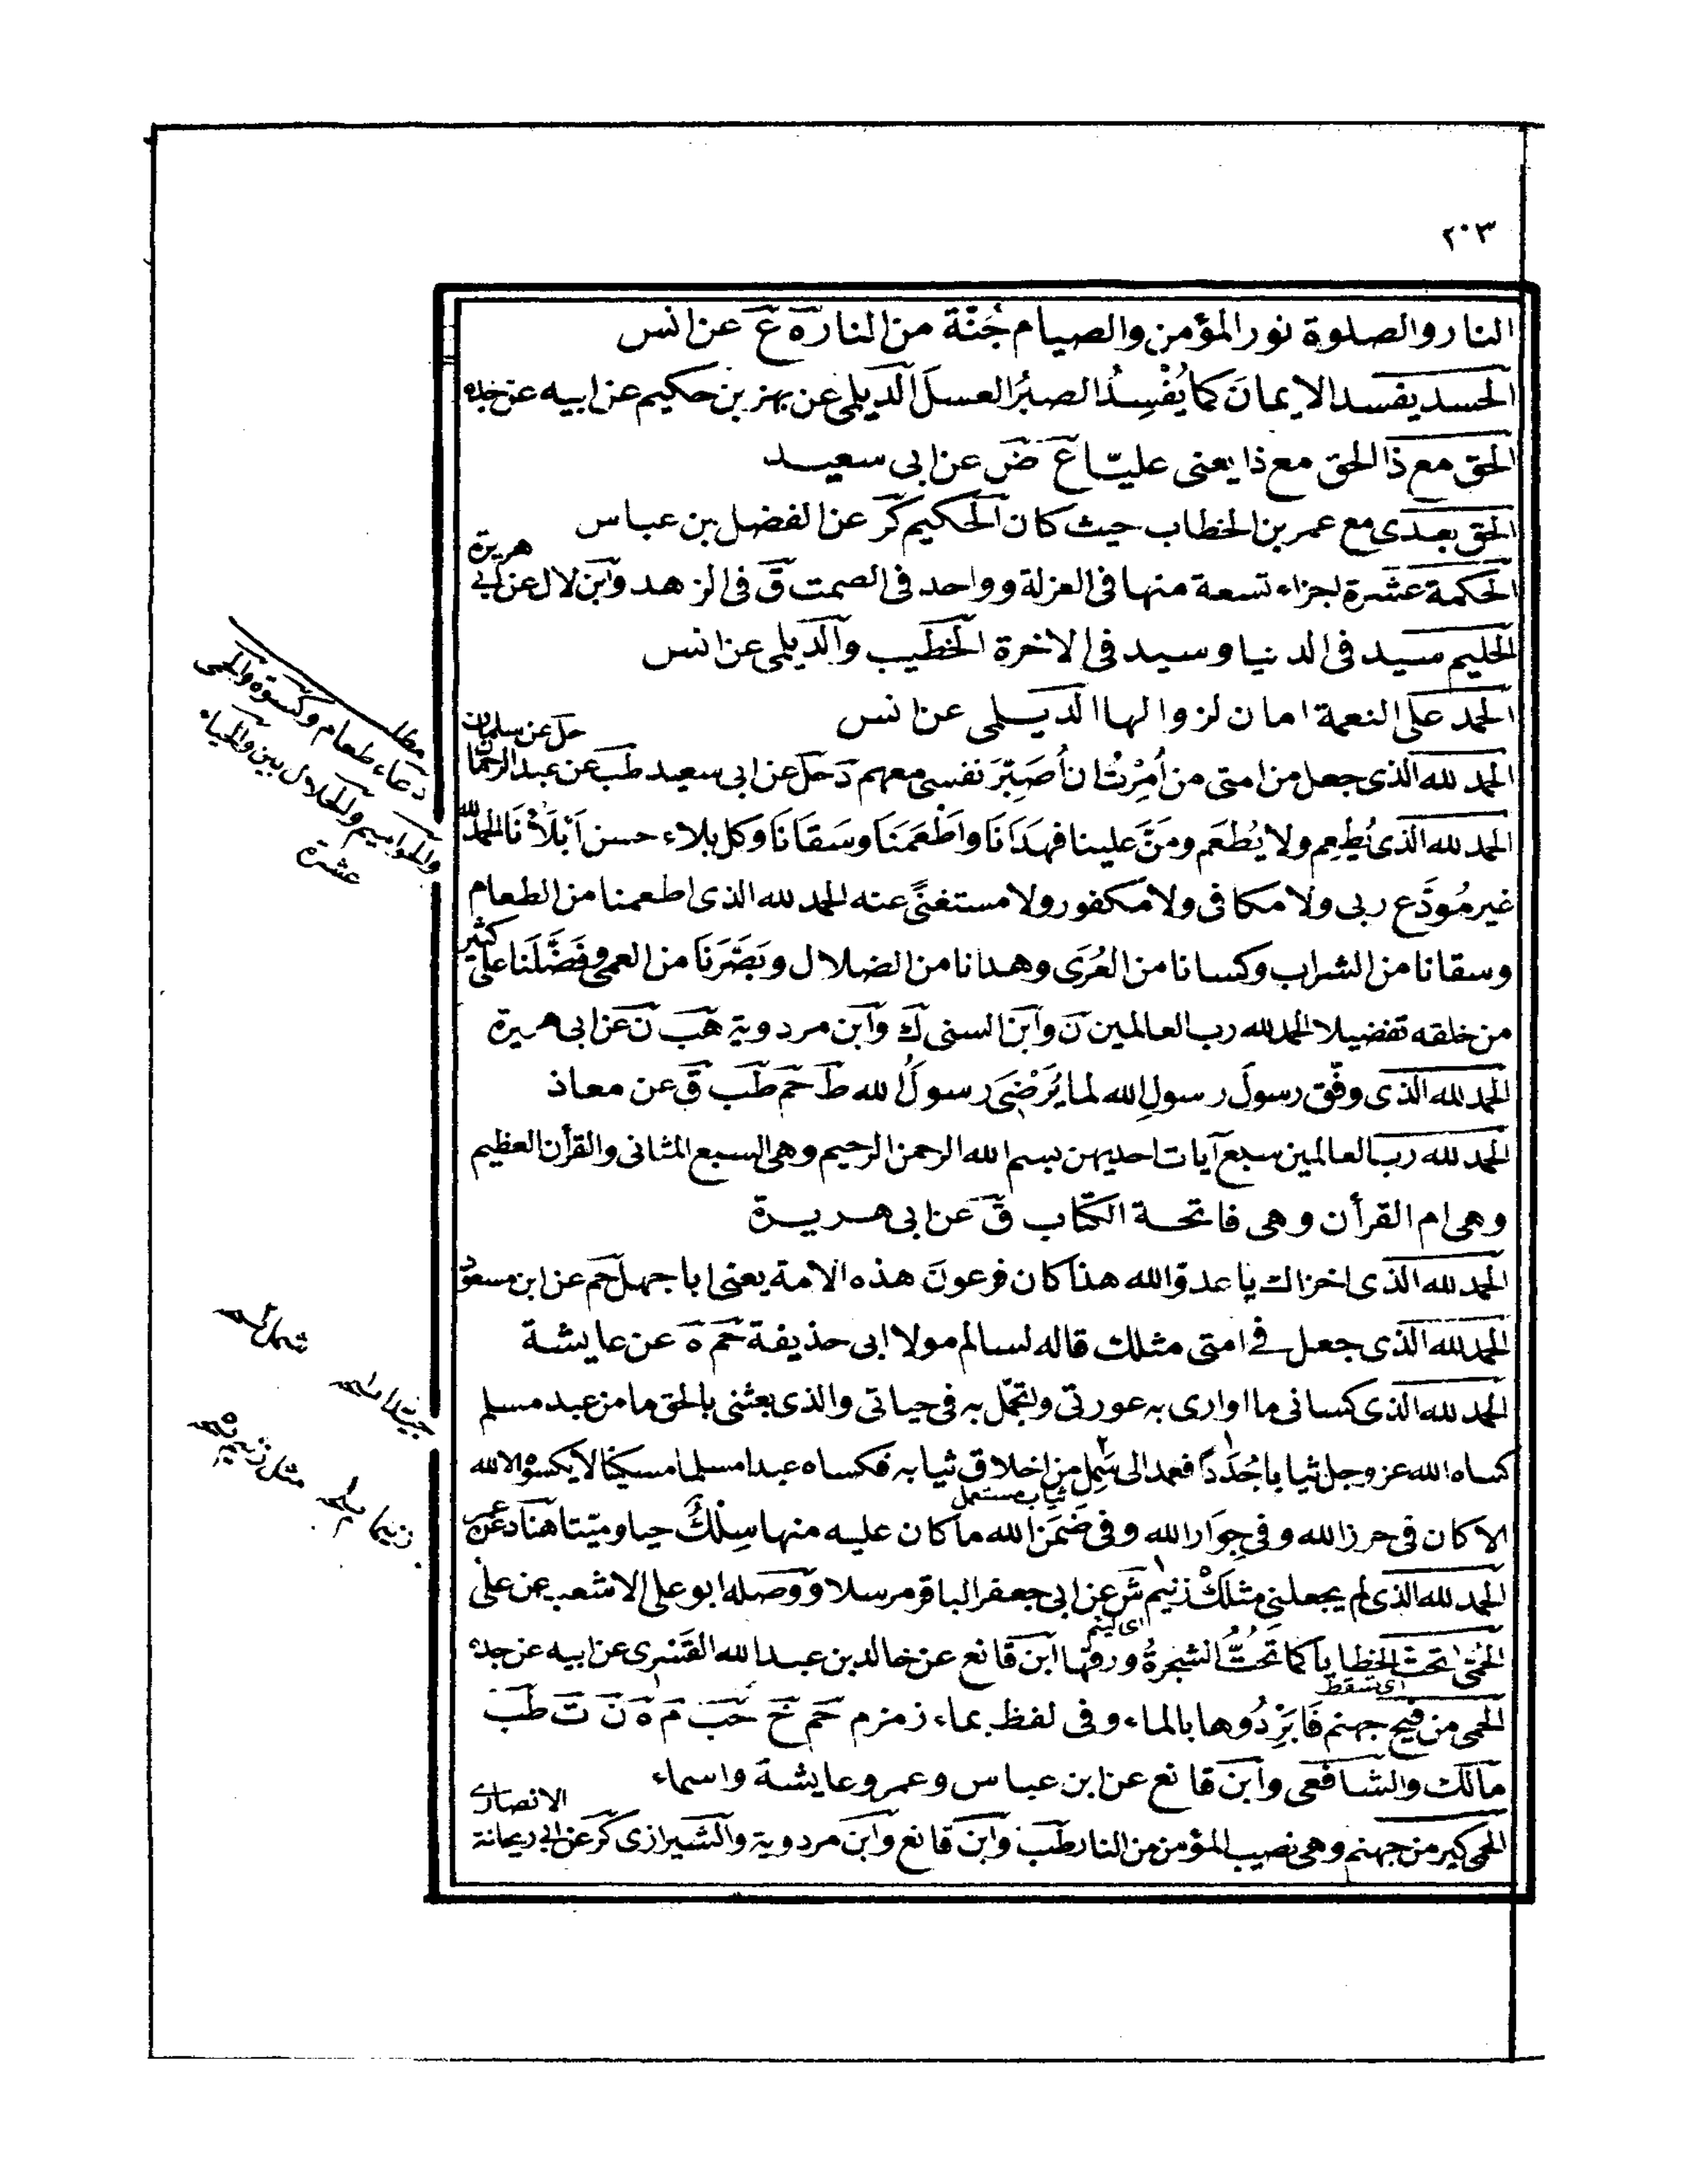 ٢٠٣
النار والصلوة نور المؤمن والصيام جُنّة من النار ه ع عن انس
الحسد يفسد الايمانَ كما يُفْسِدُ الصبرُ العسلَ الديلمى عن بهز بن حكيم عن ابيه عن جده
الحق مع ذا الحق مع ذا يعنى عليّا ع ض عن ابى سعيد
الحق بعدى مع عمر بن الخطاب حيث كان الحكيم كر عن الفضل بن عباس
الحكمة عشرة اجزاء تسعة منها فى العزلة وواحد فى الصمت ق فى الزهد وابن لال عن ابى هريرة
الحليم سيد فى الدنيا وسيد فى الاخرة الخطيب والديلمى عن انس
الحمد على النعمة امان لزوالها الديلمى عن انس
الحمد لله الذى جعل من امتى من أُمِرْتُ ان أُصَبِّرَ نفسى معهم د حل عن ابى سعيد طب عن عبد الرحمان حل عن سلمان
الحمد لله الذى يُطعِم ولا يُطعَم ومَنَّ علينا فهدَانَا واَطْعَمَنَا وسَقَانَا وكل بلاء حسن اَبْلَاْنَا الحمد لله
غير مُودَّع ربى ولا مكافى ولا مكفور ولا مستغنًى عنه الحمد لله الذى اطعمنا من الطعام
وسقانا من الشراب وكسانا من العُرَى وهدانا من الضلال وبَصَّرَنَا من العمى وفَضَّلَنَا على كثير
من خلقه تفضيلا الحمد لله رب العالمين ن وابن السنى ك وابن مردوية هب ن عن ابى هريرة
الحمد لله الذى وفّق رسولَ رسولِ الله لما يُرَضْىَ رسولُ الله ط حم طب ق عن معاذ
الحمد لله رب العالمين سبع آيات احديهن بسم الله الرحمن الرحيم وهى السبع المثانى والقرأن العظيم
وهى ام القرأن وهى فاتحة الكتاب ق عن ابى هريرة
الحمد لله الذى اخزاك يا عدوّ الله هذا كان فرعونَ هذه الامة يعنى ابا جهل حم عن ابن مسعود
الحمد لله الذى جعل فى امتى مثلك قاله لسالم مولا ابى حذيفة حم ه عن عايشة
الحمد لله الذى كسانى ما اوارى به عورتى واتجمّل به فى حياتى والذى بعثنى بالحق ما من عبد مسلم
كساه الله عز وجل ثيابا جُدَدًا فعمد الى سَمِلٍ من اخلاق ثيابه فكساه عبدا مسلما مسكينا لا يكسوه الا لله
ثياب مستعمل
الا كان فى حرز الله وفى جِوَار الله وفى ضَمَن الله ما كان عليه منها سِلْكٌ حيا وميّتا هناد عن عمر
الحمد لله الذى لم يجعلنى مثلَكْ زنيم ش عن ابى جعفر الباقر مرسلا ووصله ابو على الاشعب عن على
اى لئيم
الحُمّى تحتّ الخطايا كما تحُتُّ الشجرةُ ورقَها ابن قانع عن خالد بن عبد الله القَسْرى عن ابيه عن جده
اى تسقط
الحمى من فيح جهنم فَابْرِدُوها بالماء وفى لفظ بماء زمزم حم خ حب م ه ن ت طب
مالك والشافعى وابن قانع عن ابن عباس وعمر وعايشة واسماء
الحمى كير من جهنم وهى نصيب المؤمن من النار طب وابن قانع وابن مردوية والشيرازى كر عن ابى ريحانة الانصارى
مطلب
دعاء طعام وكسوة والحمى
والحواميم والحلال بين والحياء
عشرة